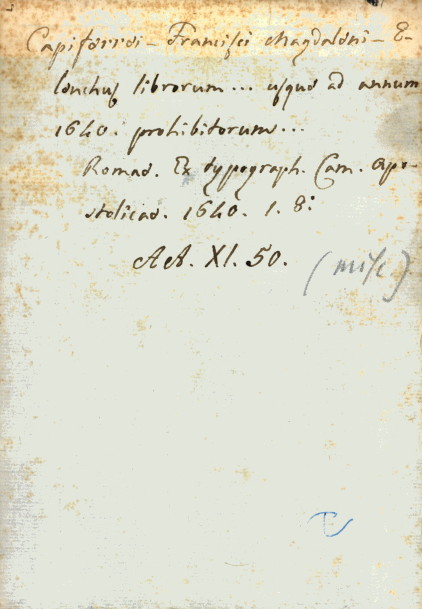 Capiferrei - Francisci Magdaleni - E-
lenchus librorum ... usque ad annum
1640. prohibitorum ...
Romae. Ex typograph. Cam. Apo-
stolicae. 1640. 1. 8:
AA. XI. 50.
(misc)